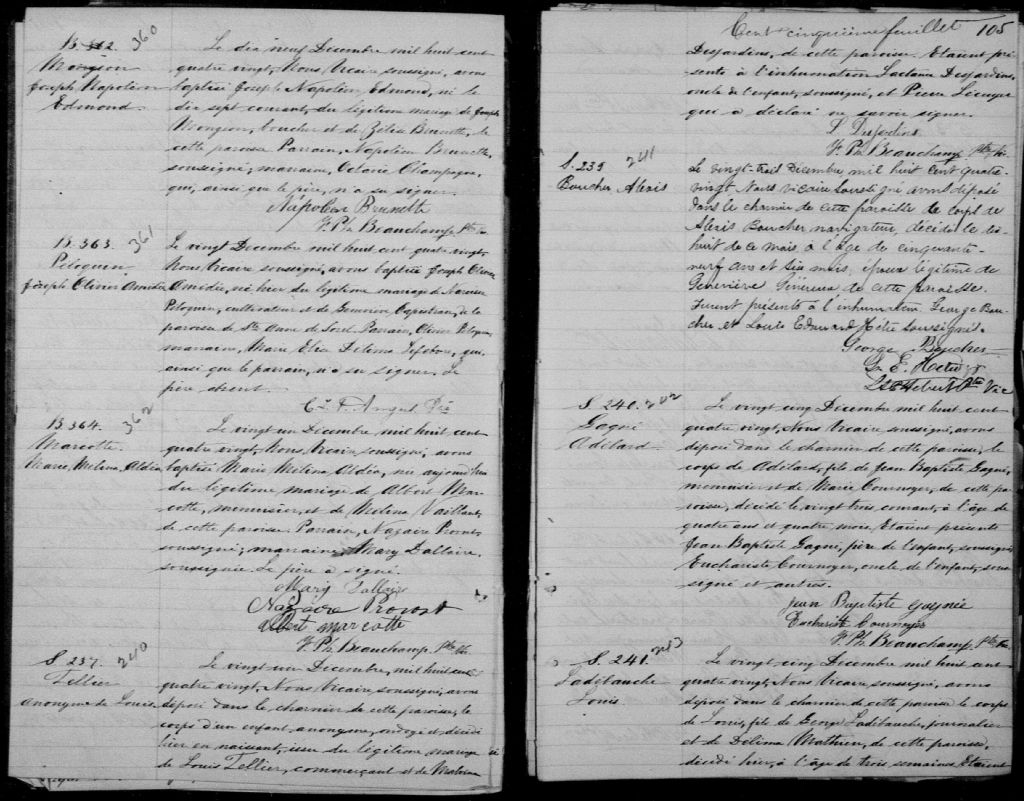 B. 362. 360
Mongeon
Joseph Napoléon
Edmond
Le dix neuf Décembre mil huit cent
quatre vingt, Nous Vicaire soussigné, avons
baptisé Joseph Napoléon Edmond, né le
dix sept courant, du légitime mariage de Joseph
Mongeon, boucher et de Zélia Brunette, de
cette paroisse Parrain, Napoléon Brunette,
soussigné; marraine, Octavie Champagne,
qui, ainsi que le père, n'a su signer.
Napoléon Brunette
J. Ph. Beauchamp Ptre Vic
B. 363. 361
Peloquin
Joseph Olivier Amédée
Le vingt Décembre mil huit cent quatre vingt,
Nous Vicaire soussigné, avons baptisé Joseph Olivier
Amédée, né hier du légitime mariage de Narcisse
Peloquin, cultivateur et de Capistran, de la
paroisse de Ste Anne de Sorel. Parrain, Olivier Peloquin
marraine, Marie Elia Délima Lefebvre, qui,
ainsi que le parrain, n'a su signer. Le
père absent.
Ptre
B. 364. 362
Marcotte
Marie Mélina Aldéa
Le vingt un Décembre mil huit cent
quatre vingt, Nous Vicaire soussigné, avons
baptisé Marie Mélina Aldéa, née aujourd'hui
du légitime mariage de Albert Mar
cotte, menuisier, et de Mélina Vaillant,
de cette paroisse Parrain, Nazaire Provost
soussigné; marraine Mary Dallaire,
soussignée. Le père a signé.
Mary
Nazaire Provost
albert marcotte
J. Ph. Beauchamp, Ptre Vic
S. 237. 240
Tellier
anonyme de Louis
Le vingt un Décembre, mil huit cent
quatre vingt, Nous Vicaire soussigné, avons
déposé dans le charnier de cette paroisse, le
corps d'un enfant anonyme, ondoyé et décédé
hier en naissant, issu du légitime mariage
de Louis Tellier, commerçant et de
Cent cinquième feuillet 105
Desjardins, de cette paroisse. Etaient pré-
sents à l'inhumation Desjardins,
oncle de l'enfant, soussigné, et Pierre
qui a déclaré ne savoir signer.
Desjardins
J. Ph. Beauchamp Ptre Vic
S. 239 241
Boucher, Alexis
Le vingt-trois Décembre mil huit cent quatre-
vingt Nous vicaire soussigné avons déposé
dans le charnier de cette paroisse le corps de
Alexis Boucher navigateur, décédé le dix-
huit de ce mois à l'âge de cinquante-
neuf ans et six mois, époux légitime de
Geneviève Généreux de cette paroisse.
Furent présents à l'inhumation George Bou-
cher et Louis Edouard Hétu soussignés.
George Boucher
L. E. Hétu
Hebert Ptre Vic
S. 240. 242
Gagné
Adélard
Le vingt cinq Décembre mil huit cent
quatre vingt, Nous Vicaire soussigné, avons
déposé dans le charnier de cette paroisse, le
corps de Adélard, fils de Jean Baptiste Gagné,
menuisier et de Marie Cournoyer, de cette pa
roisse, décédé le vingt trois courant, à l'âge de
quatre ans et quatre mois. Etaient présents
Jean Baptiste Gagné, père de l'enfant, soussigné
Euchariste Cournoyer, oncle de l'enfant, sous-
signé et autres.
Jean Baptiste gagnée
Euchariste Cournoyer
J. Ph. Beauchamp, Ptre Vic
S. 241. 243
Ladébauche
Louis
Le vingt cinq Décembre mil huit cent
quatre vingt, Nous Vicaire soussigné, avons
déposé dans le charnier de cette paroisse le corps
de Louis, fils de George Ladébauche, journalier
et de Délima Mathieu, de cette paroisse,
décédé hier, à l'âge de trois semaines Etaient